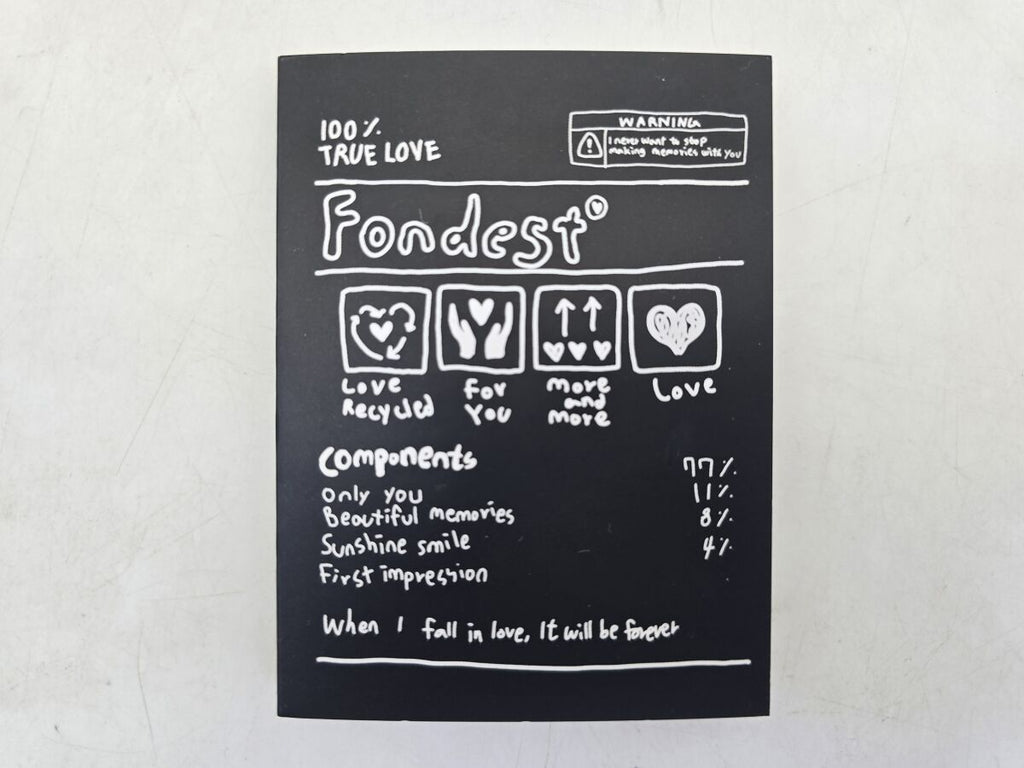 100%
TRUE LOVE
WARNING
I never want to stop
making memories with you
Fondest
Love
Recycled
For
You
More
and
More
Love
Components
77%
Only you
11%
Beautiful memories
8%
Sunshine smile
4%
First impression
When I fall in love, It will be forever